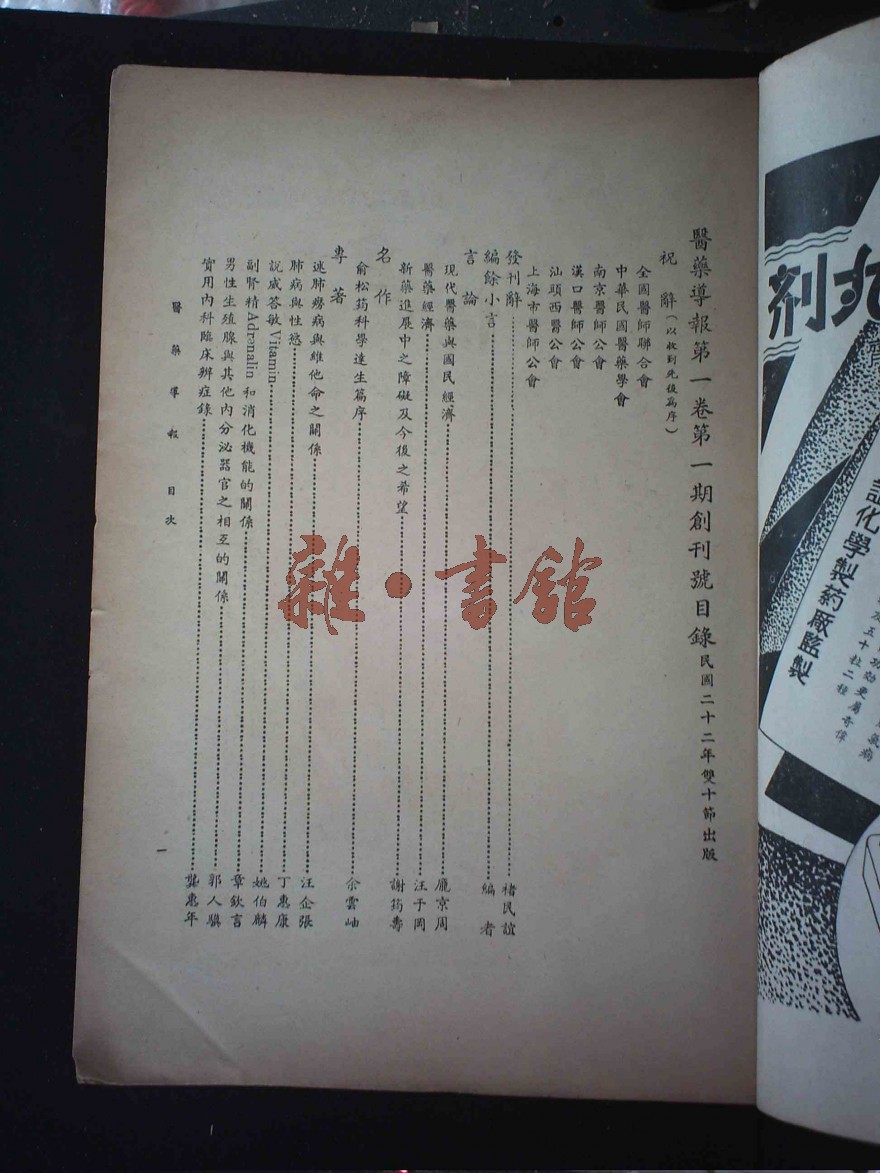 醫藥導報第一卷第一期創刊號目錄 民國二十二年雙十節出版
祝辭(以收到先後為序)
全國醫師聯合會
中華民國醫藥學會
南京醫師公會
漢口醫師公會
汕頭西醫公會
上海市醫師公會
發刊辭 褚民誼
編餘小言 編者
言論
現代醫藥與國民經濟 龐京周
醫藥經濟 汪于岡
新藥進展中之障礙及今後之希望 謝筠壽
名作
俞松筠科學達生篇序 余雲岫
專著
述肺癆病與維他命之關係 汪企張
肺病與性慾 丁惠康
説威答敏Vitamin 姚伯麟
副腎精Adrenalin和消化機能的關係 章欽言
男性生殖腺與其他內分泌器官之相互的關係 郭人驥
實用內科臨床辨症錄 龔惠年
醫藥導報 目次
一
雜·書館
丸剂
化學製药厰監製
五十粒二種